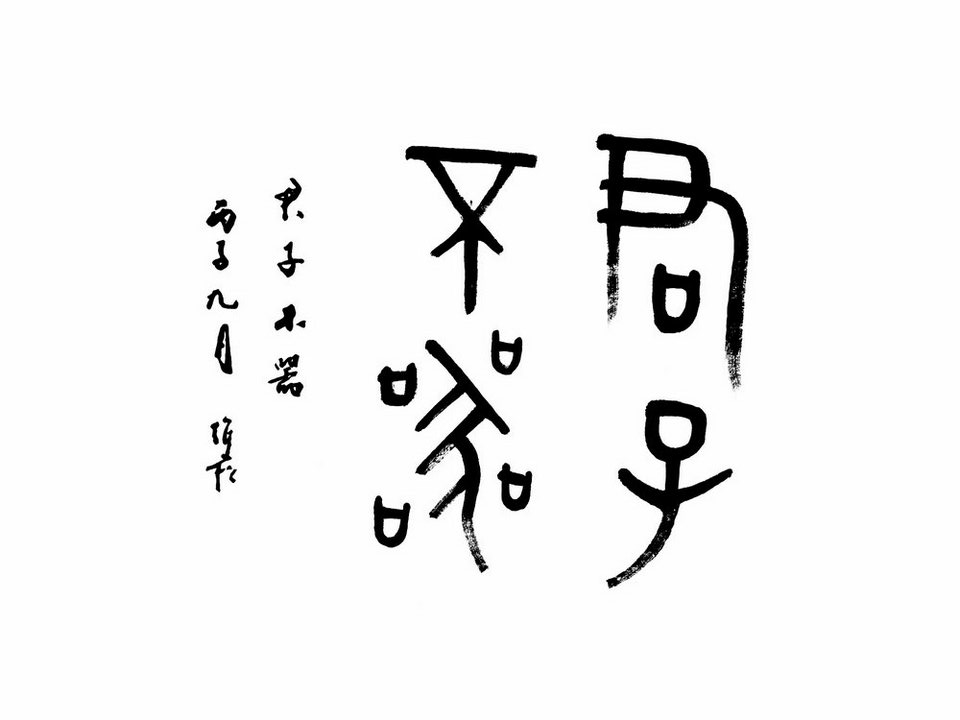 君子
不器
君子不器
丙子九月